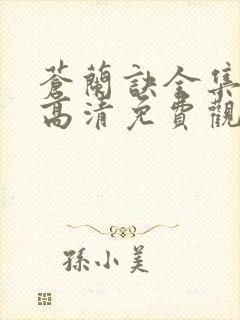 蒼蘭訣全集
高清免費觀
孫小美